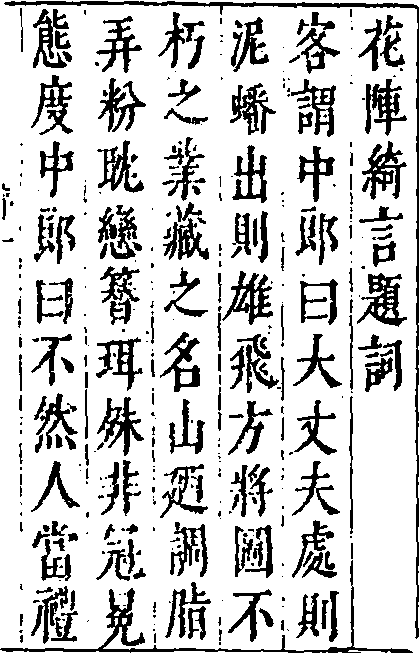 花陣綺言題詞
客謂中郎曰大丈夫處則
泥蟠出則雄飛方將圖不
朽之業藏之名山廼調脂
弄粉耽戀簪珥殊非冠冕
態度中郎曰不然人當禮